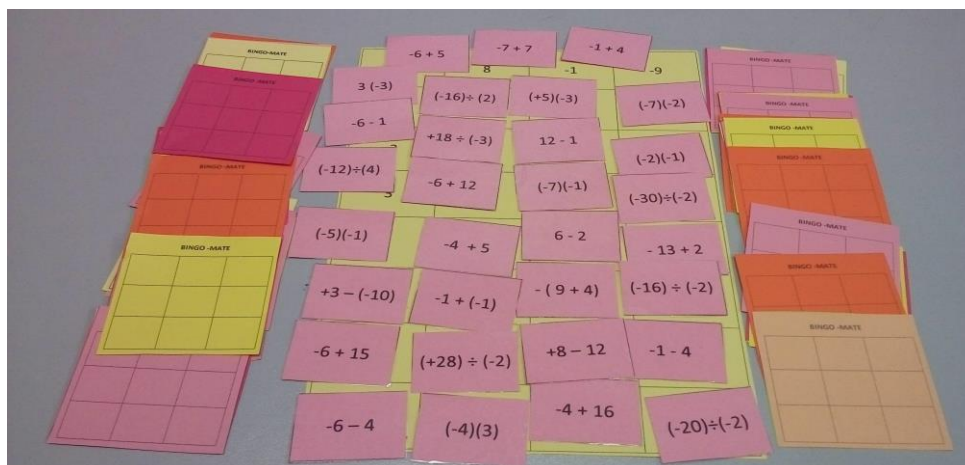 BINGO-MATE
BINGO -MATE
BINGO -MATE
BINGO -MATE
-6 + 5
-7 + 7
-1 + 4
8
-1
-9
3 (-3)
(-16)÷ (2)
(+5)(-3)
(-7)(-2)
-6 - 1
+18 ÷ (-3)
12 - 1
(-2)(-1)
(-12)÷(4)
-6 + 12
(-7)(-1)
(-30)÷(-2)
3
(-5)(-1)
-4 + 5
6 - 2
- 13 + 2
+3 – (-10)
-1 + (-1)
- ( 9 + 4)
(-16) ÷ (-2)
-6 + 15
(+28) ÷ (-2)
+8 – 12
-1 - 4
-6 – 4
(-4)(3)
-4 + 16
(-20)÷(-2)
BINGO -MATE
BINGO -MATE
BINGO -MATE
BINGO -MATE
BINGO -MATE
BINGO -MATE